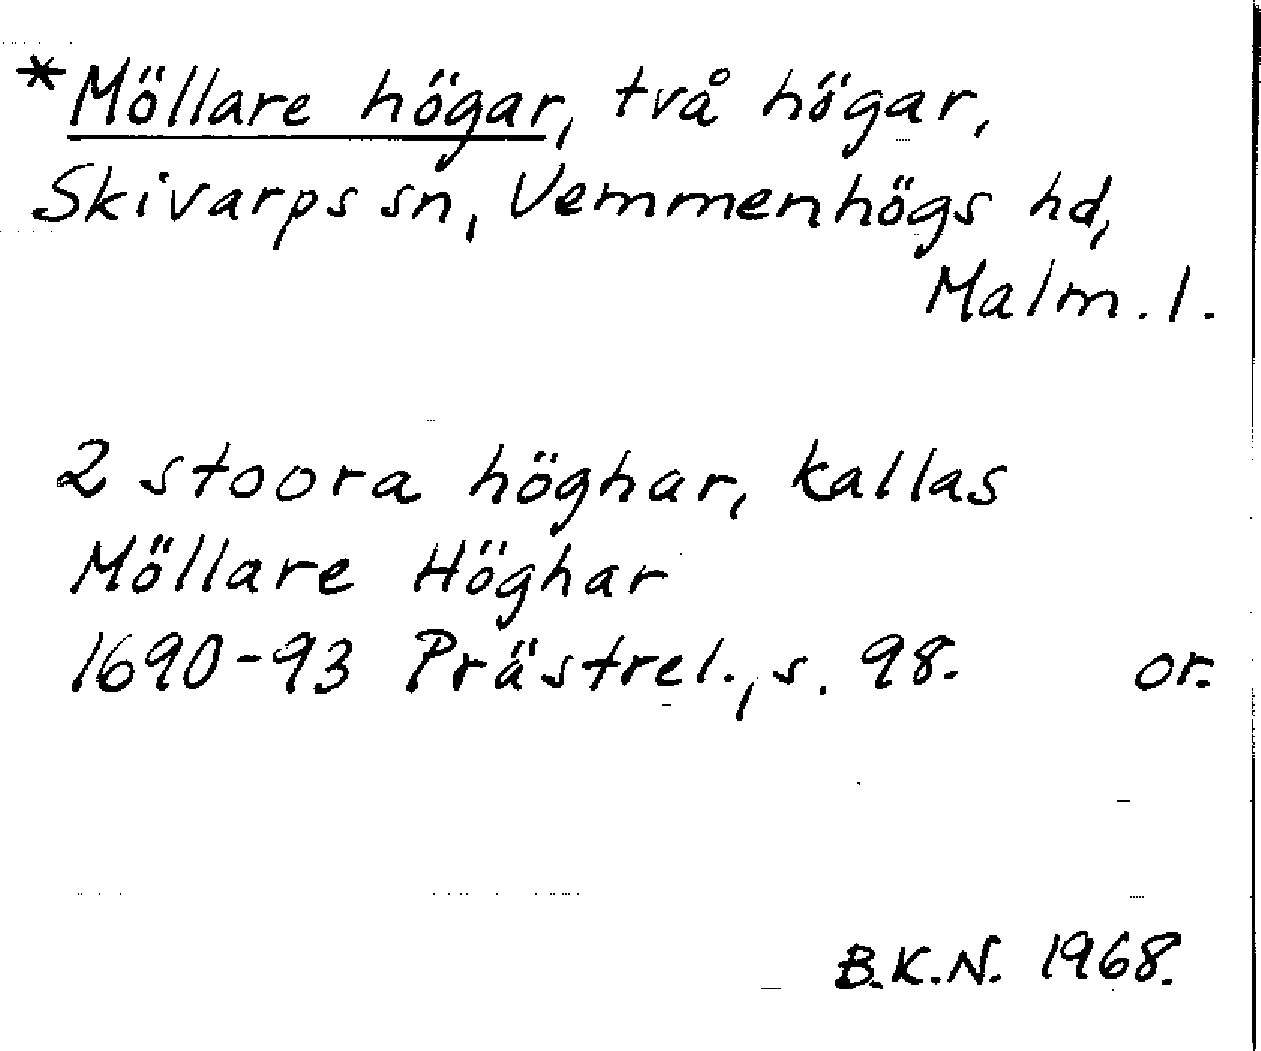 *Möllare högar, två högar,
Skivarps sn, Vemmenhögs hd,
Malm. l.
2 stoora höghar, kallas
Möllare Höghar
1690-93 Prästrel., s. 98. or.
B.K.N. 1968.